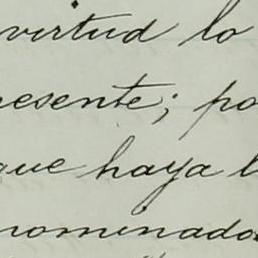 virtud lo
resente; po
que haya l
nominado